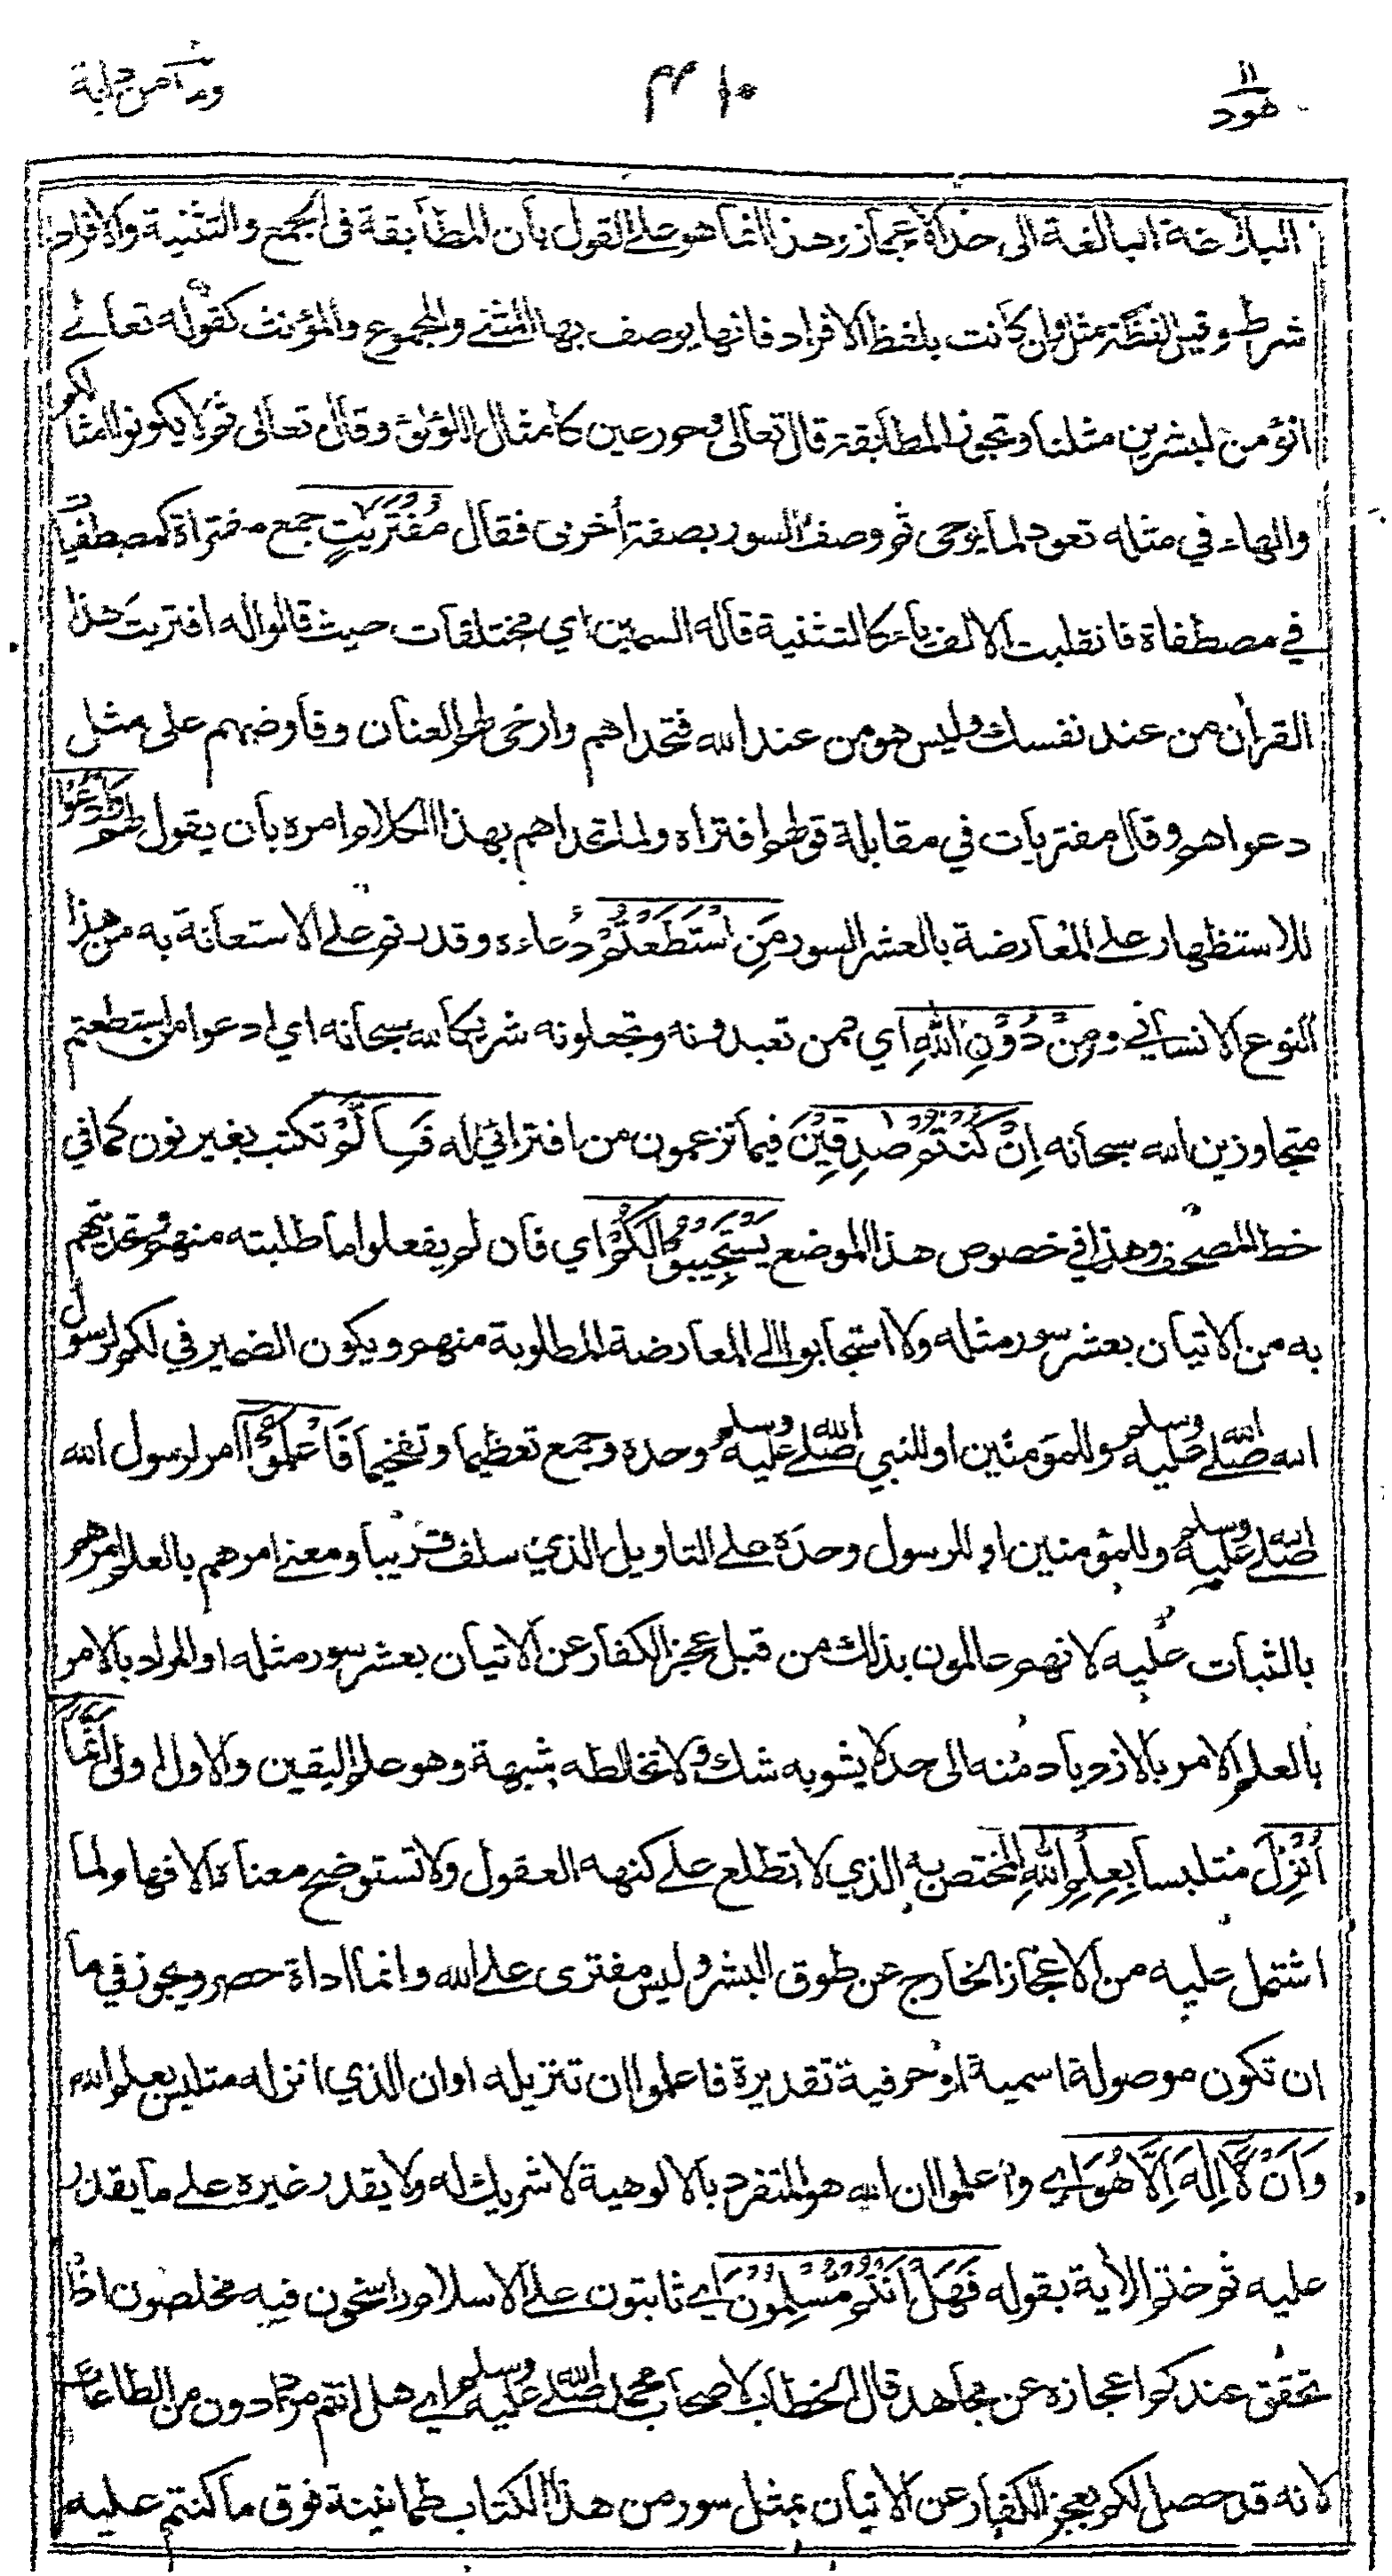 هود ١١
٤١٠
ومآ من دابة
البلاغة البالغة الى حد الاعجاز وهذا انما هو على القول بان المطابقة في الجمع والتثنية والافراد
شرط وقيل لفظة مثل وان كانت بلفظ الافراد فانها يوصف بها المثنى والمجموع والمؤنث كقوله تعالى
انؤمن لبشرين مثلنا وتجوز المطابقة قال تعالى وحور عين كامثال اللؤلؤ وقال تعالى ثم لا يكونوا امثالكم
والهاء في مثله تعود لما يوحى ثم وصف السور بصفة أخرى فقال مُفْتَرَيٰتٍ جمع مفتراة كمصطفيات
في مصطفاة فانقلبت الالف ياء كالتثنية قاله السمين اي مختلقات حيث قالوا له افتريت هذا
القران من عند نفسك وليس هو من عند الله فتحداهم وارخى لهم العنان وفاوضهم على مثل
دعواهم وقال مفتريات في مقابلة قولهم افتراه ولما تحداهم بهذا الكلام امره بان يقول لهم وَادْعُوا
للاستظهار على المعارضة بالعشر السور مَنِ اسْتَطَعْتُمْ دعاءه وقدرتم على الاستعانة به من هذا
النوع الانساني ومِنْ دُوْنِ اللّٰهِ اي ممن تعبدونه وتجعلونه شريكا لله سبحانه اي ادعوا من استطعتم
متجاوزين الله سبحانه اِنْ كُنْتُمْ صٰدِقِيْنَ فيما تزعمون من افترائي له فَاِلَّمْ تكتب بغير نون كما في
خط المصحف وهذا في خصوص هذا الموضع يَسْتَجِيْبُوْا لَكُمْ اي فان لم يفعلوا ما طلبته منهم وتحديتهم
به من الاتيان بعشر سور مثله ولا استجابوا الى المعارضة المطلوبة منهم ويكون الضمير في لكم لرسول
الله صلى الله عليه وسلم وللمؤمنين او للنبي صلى الله عليه وسلم وحده وجمع تعظيما وتفخيما فَاعْلَمُوْا امر لرسول الله
صلى الله عليه وسلم وللمؤمنين او للرسول وحده على التاويل الذي سلف قريبا ومعنى امرهم بالعلم امرهم
بالثبات عليه لانهم عالمون بذلك من قبل عجز الكفار عن الاتيان بعشر سور مثله او المراد بالامر
بالعلم الامر بالازدياد منه الى حد لا يشوبه شك ولا تخالطه شبهة وهو علم اليقين والاول اولى اَنَّمَا
اُنْزِلَ متلبسا بِعِلْمِ اللّٰهِ المختص به الذي لا تطلع على كنهه العقول ولا تستوضح معناه الافهام ولما
اشتمل عليه من الاعجاز الخارج عن طوق البشر وليس مفترى على الله وانما اداة حصر ويجوز في ما
ان تكون موصولة اسمية او حرفية تقديره فاعلموا ان تنزيله او ان الذي انزله متلبس بعلم الله
وَاَنْ لَّآ اِلٰهَ اِلَّا هُوَ اي واعلموا ان الله هو المتفرد بالالوهية لا شريك له ولا يقدر غيره على ما يقدر
عليه ثم ختم الآية بقوله فَهَلْ اَنْتُمْ مُسْلِمُوْنَ اي ثابتون على الاسلام راسخون فيه مخلصون اذا
تحقق عندكم اعجازه عن مجاهد قال الخطاب لاصحاب محمد صلى الله عليه وسلم اي هل انتم مزدادون من الطاعات
لانه قد حصل لكم بعجز الكفار عن الاتيان بمثل سور من هذا الكتاب طمانينة فوق ما كنتم عليه